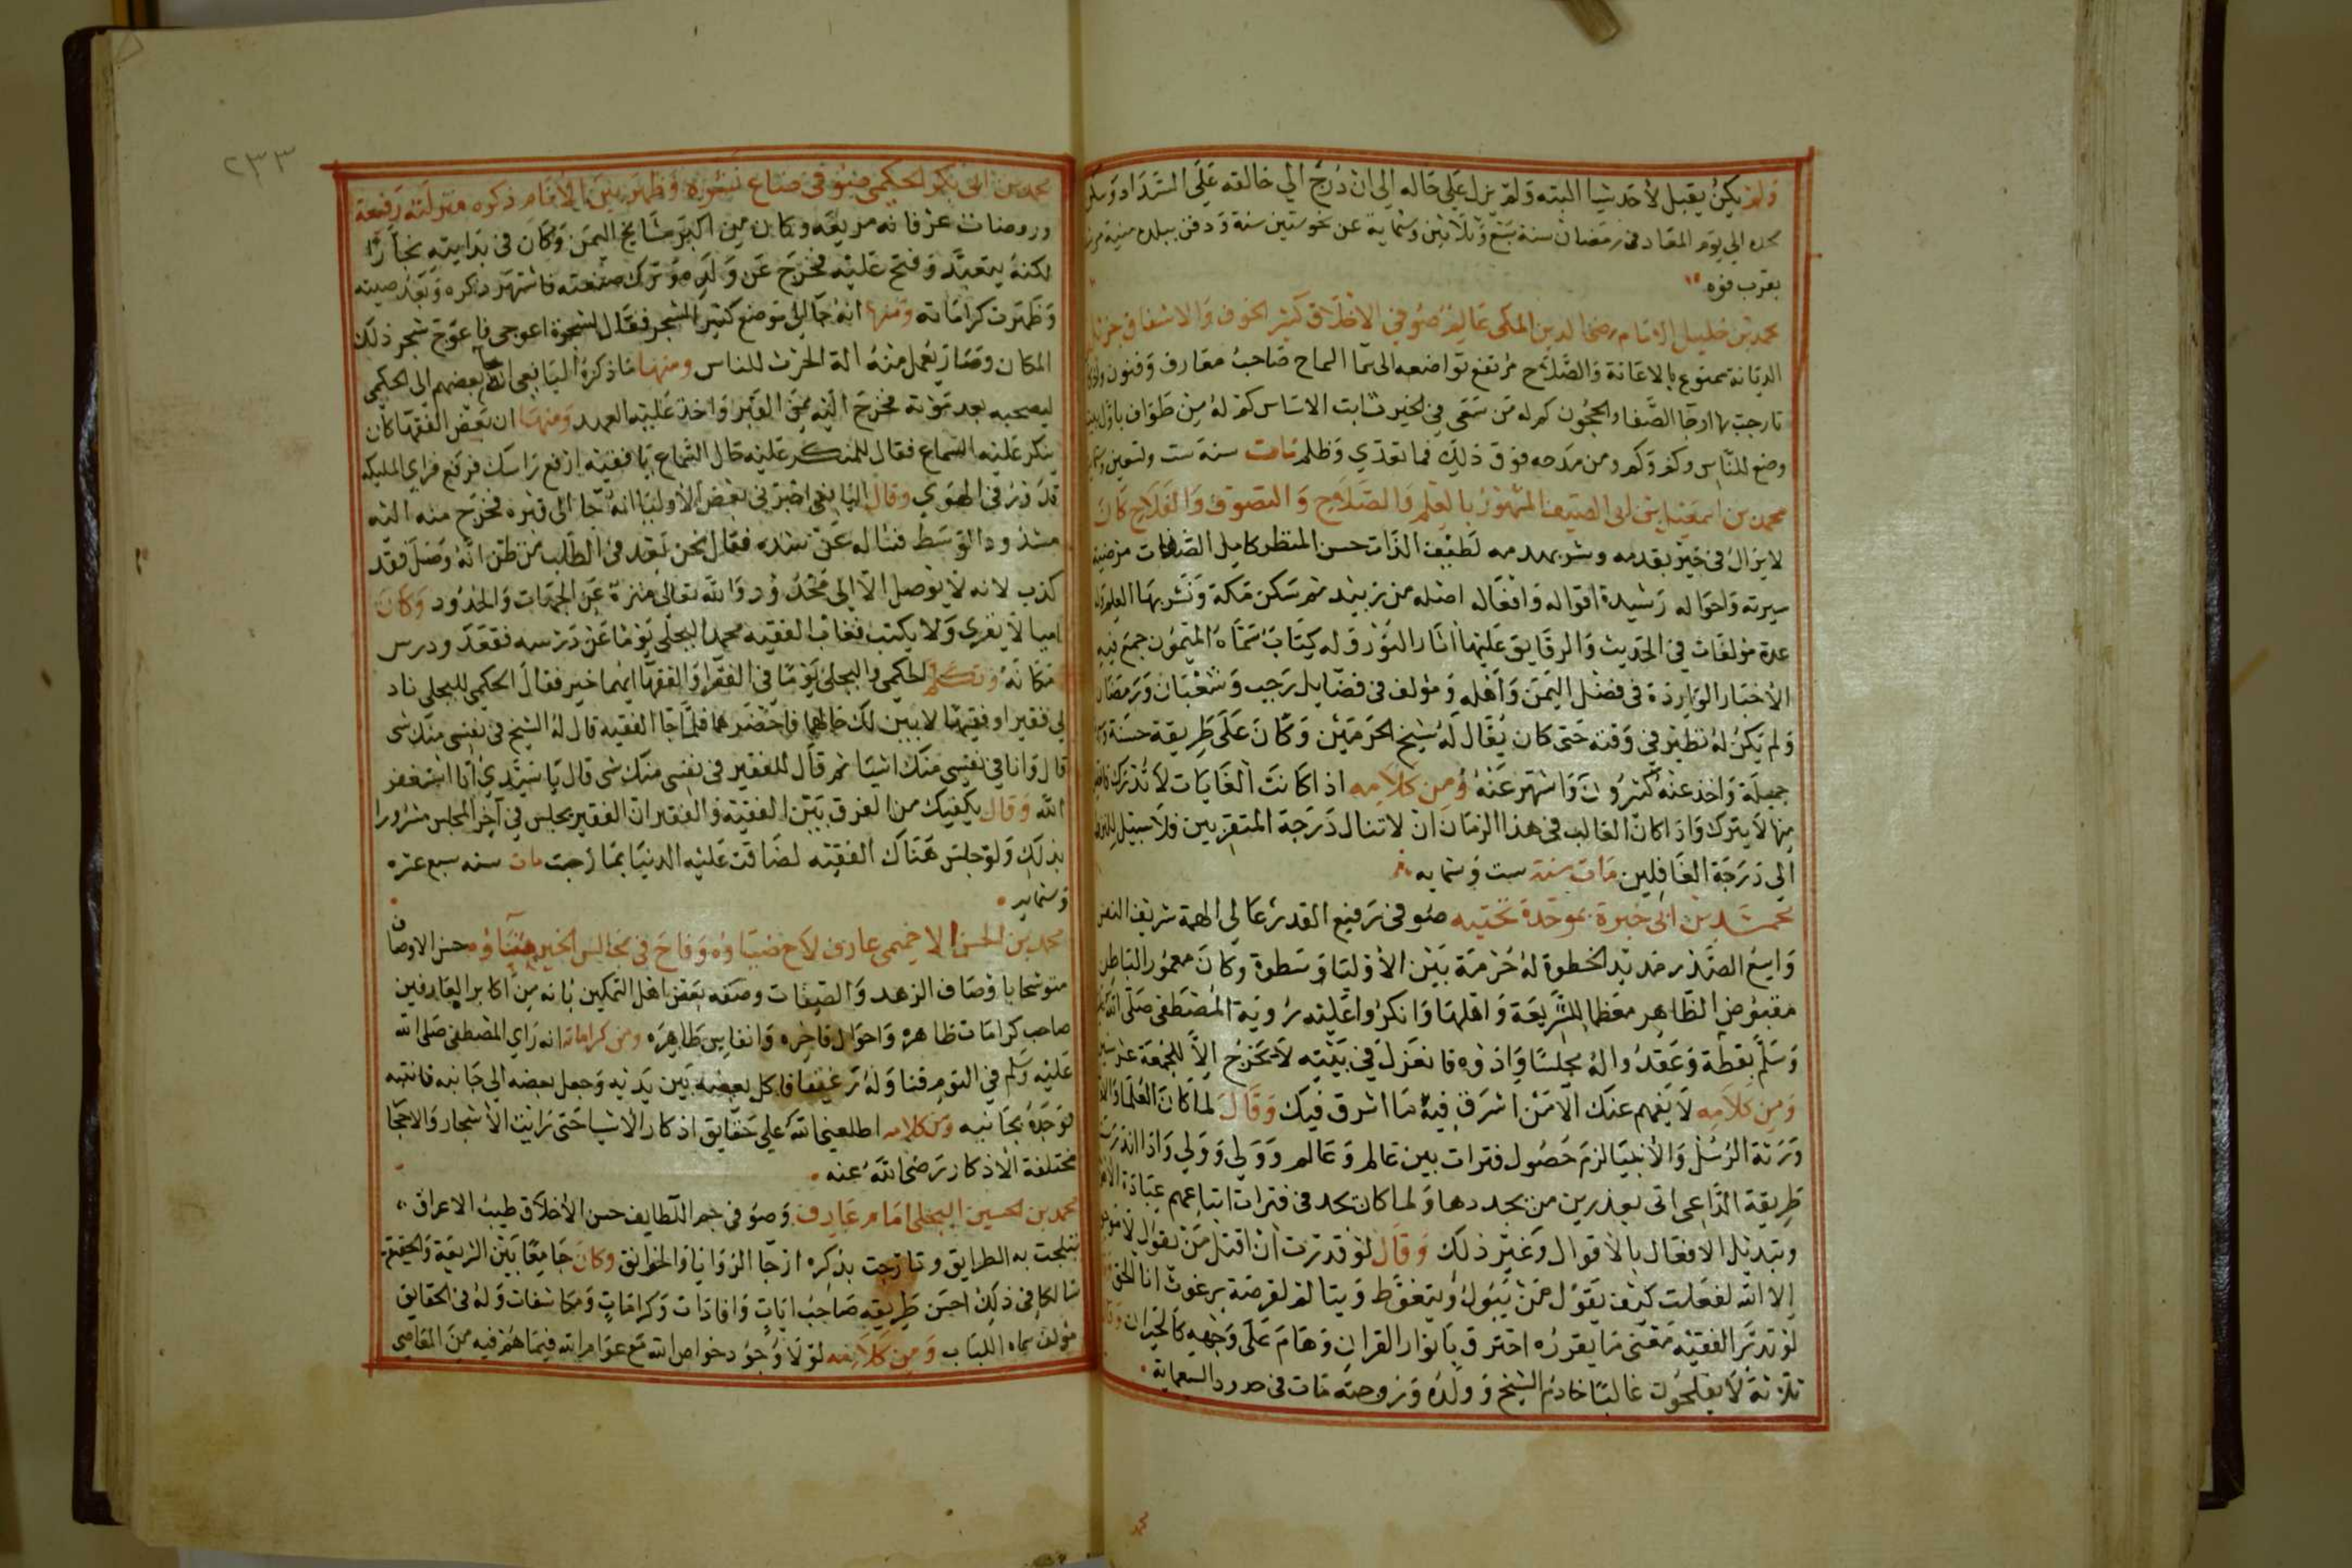 ولم يكن يقبل لأحد شيا البته ولم يزل على حاله الى ان درج الي خالقه على السداد وسكن
لحده الى يوم المعاد في رمضان سنة سبع وثلاثين وستماية عن نحو ستين سنة ودفن ببلده منية مرشد
بقرب فوه
محمد بن خليل الامام رضي الدين المكى عالم صوفي الاخلاق كثير الخوف والاشفاق جزيل
الديانة ممنوع بالاعانة والصلاح مرتفع تواضعه الى سما السماح صاحب معارف وفنون
تارجت بها ارجا الصفا والحجون كم له من سعى في الخير ثابت الاساس كم له من طواف باول بيت
وضع للناس وكم وكم ومن مدحه فوق ذلك فما تعدي وظلم مات سنة ست وتسعين
محمد بن اسمعيل بن ابى الصيف المشهور بالعلم والصلاح والتصوف والفلاح كان
لا يزال في خير يقدمه وشر يهدمه لطيف الذات حسن المنظر كامل الصفات مرضية
سيرته واحواله رشيدة اقواله وافعاله اصله من زبيد ثم سكن مكة ونشر بها العلم وله
عدة مؤلفات في الحديث والرقايق عليها اثار النور وله كتاب سماه الميمون جمع فيه
الاخبار الواردة في فضل اليمن واهله ومؤلف في فضايل رجب وشعبان ورمضان
ولم يكن له نظير في وقته حتى كان يقال له شيخ الحرمين وكان على طريقة حسنة
جميلة واخذ عنه كثيرون واشتهر عنه ومن كلامه اذا كانت الغايات لا تدرك
منها لا يترك واذا كان الغالب في هذا الزمان ان لا تنال درجة المتقربين فلا سبيل للنزول
الى درجة الغافلين مات سنة ست وستمايه
محمد بن ابى حبرة بموحدة تحتيه صوفى رفيع القدر عالي الهمة شريف النفس
واسع الصدر مديد الخطوة له حرمة بين الاوليا وسطوة وكان معمور الباطن
مقبوض الظاهر معظما للشريعة واهلها وانكروا عليه روية المصطفى صلى الله
وسلم يقظة وعقدوا له مجلسا واذوه فانعزل في بيته لا يخرج الا للجمعة عدة سنين
ومن كلامه لا يفهم عنك الا من اشرق فيه ما اشرق فيك وقال لما كان العلما والاوليا
ورثة الرسل والانبيا لزم حصول فترات بين عالم وعالم وولي وولي واذا اندرست
طريقة الداعي اتى بعد زمن من يجددها ولما كان تحد في فترات اتباعهم عبادة الاهوا
وتبديل الافعال بالاقوال وغير ذلك وقال لو قدرت ان اقتل من يقول لا موجود
الا الله لفعلت كيف يقول من يبول ويتغوط ويتالم لقرصة برغوث انا الحق
لو تدبر الفقيه معنى ما يقرره احترق بانوار القران وهام على وجهه كالحيران وقال
ثلاثة لا يفلحون غالبا خادم الشيخ وولده وزوجته مات في حدود السبعماية
محمد
٢٣٣
محمد بن ابى بكر الحكمى صوفى ضاع نشره وظهر بين الانام ذكره منزلته رفيعة
وروضات عرفانه مريعة وكان من اكبر مشايخ اليمن وكان في بدايته نجارا
لكنه يتعبد وفتح عليه فخرج عن ولده وترك صنعته فاشتهر ذكره وبعد صيته
وظهرت كراماته ومنها انه جا الى موضع كثير الشجر فقال لشجرة اعوجى فاعوج شجر ذلك
المكان وصار يعمل منه الة الحرث للناس ومنها ما ذكره اليافعى انه جا بعضهم الى الحكمي
ليصحبه بعد موته فخرج اليه من القبر واخذ عليه العهد ومنها ان بعض الفقها كان
ينكر عليه السماع فقال للمنكر عليه حال السماع يا فقيه ارفع راسك فرفع فراي المليكه
تدور في الهوي وقال اليافعي اخبرني بعض الاوليا انه جا الى قبره فخرج منه اليه
مشدود الوسط فساله عن شده فقال نحن بعد في الطلب من ظن انه وصل فقد
كذب لانه لا يوصل الا الى محدود والله تعالى منزه عن الجهات والحدود وكان
اميا لا يقرى ولا يكتب فغاب الفقيه محمد البجلى يوما عن درسه فقعد ودرس
مكانه وتكلم الحكمي والبجلى يوما في الفقرا والفقها ايهما خير فقال الحكمي للبجلي ناد
لي فقيرا وفقيها لابين لك حالهما فاحضرهما فلما جا الفقيه قال له الشيخ في نفسى منك شى
قال وانا في نفسي منك اشيا ثم قال للفقير في نفسى منك شى قال يا سيدي انا استغفر
الله وقال يكفيك من الفرق بين الفقيه والفقير ان الفقير يجلس في آخر المجلس مسرورا
بذلك ولو جلس هناك الفقيه لضاقت عليه الدنيا بما رحبت مات سنه سبع عشره
وستمايه
محمد بن الحسن الاخميمى عارف لاح ضياوه وفاح في مجالس الخير هناوه حسن الاوصاف
متوشحا باوصاف الزهد والصيفات وصفه بعض اهل التمكين بانه من اكابر العارفين
صاحب كرامات ظاهره واحوال فاخره وانفاس طاهره ومن كراماته انه راي المصطفى صلى الله
عليه وسلم في النوم فناوله رغيفا فاكل بعضه بين يديه وجعل بعضه الى جانبه فانتبه
فوجده بجانبه ومن كلامه اطلعني الله على حقايق اذكار الاشيا حتى رايت الاشجار والاحجا
مختلفة الاذكار رضى الله عنه
محمد بن الحسين البجلى امام عارف وصوفى جم اللطايف حسن الاخلاق طيب الاعراق
تبلجت به الطرايق وتارجت بذكره ارجا الزوايا والخوانق وكان جامعا بين الشريعة والحقيقة
سالكا في ذلك احسن طريقه صاحب ايات وافادات وكرامات ومكاشفات وله في الحقايق
مؤلف سماه اللباب ومن كلامه لولا وجود خواص الله مع عوام الله فيما هم فيه من المعاصى